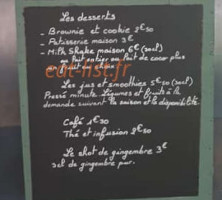 Les desserts
- Brownie et cookie 2€50
- Patisserie maison 3€
- Milk Shake maison 6€ (sort)
au lait entier ou lait de coco plus
un fruit au choix
eat-list.fr
Les jus et smoothies 5€50 (sort)
Pressé minute. Légumes et fruits à la
demande suivant la saison et la disponibilité
Café 1€50
Thé et infusion 2€50
Le shot de gingembre 3€
Sel de gingembre pur.